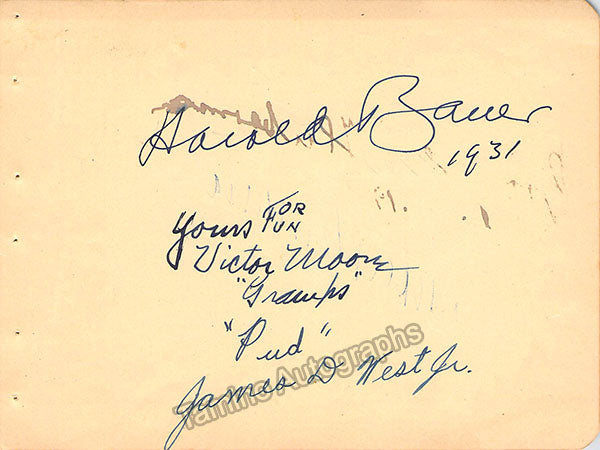 Harold Bauer
1931
Yours FOR FUN
Victor Moore
"Gramps"
"Pud"
James D West Jr.
Tamino Autographs